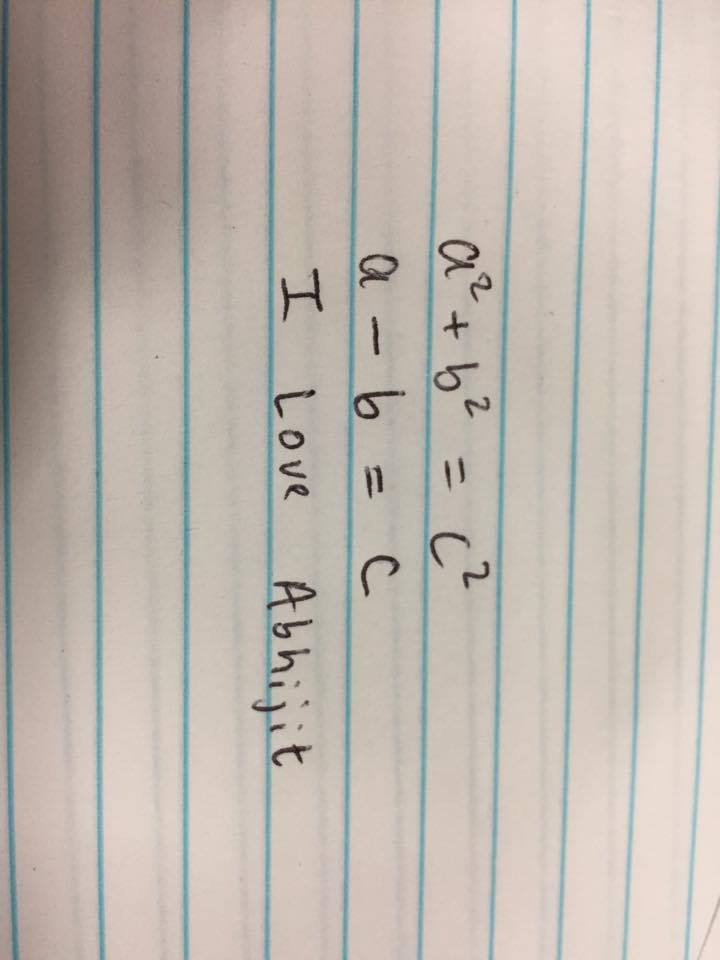 a² + b² = c²
a - b = c
I Love Abhijit